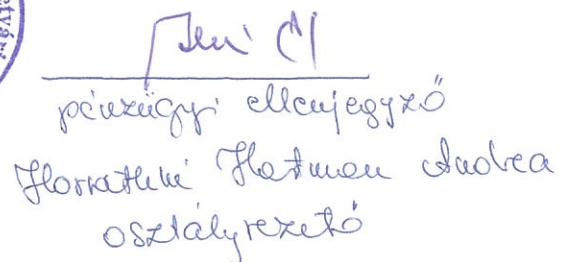 pénzügyi ellenjegyző
Horváthné Hatman Andrea
osztályvezető